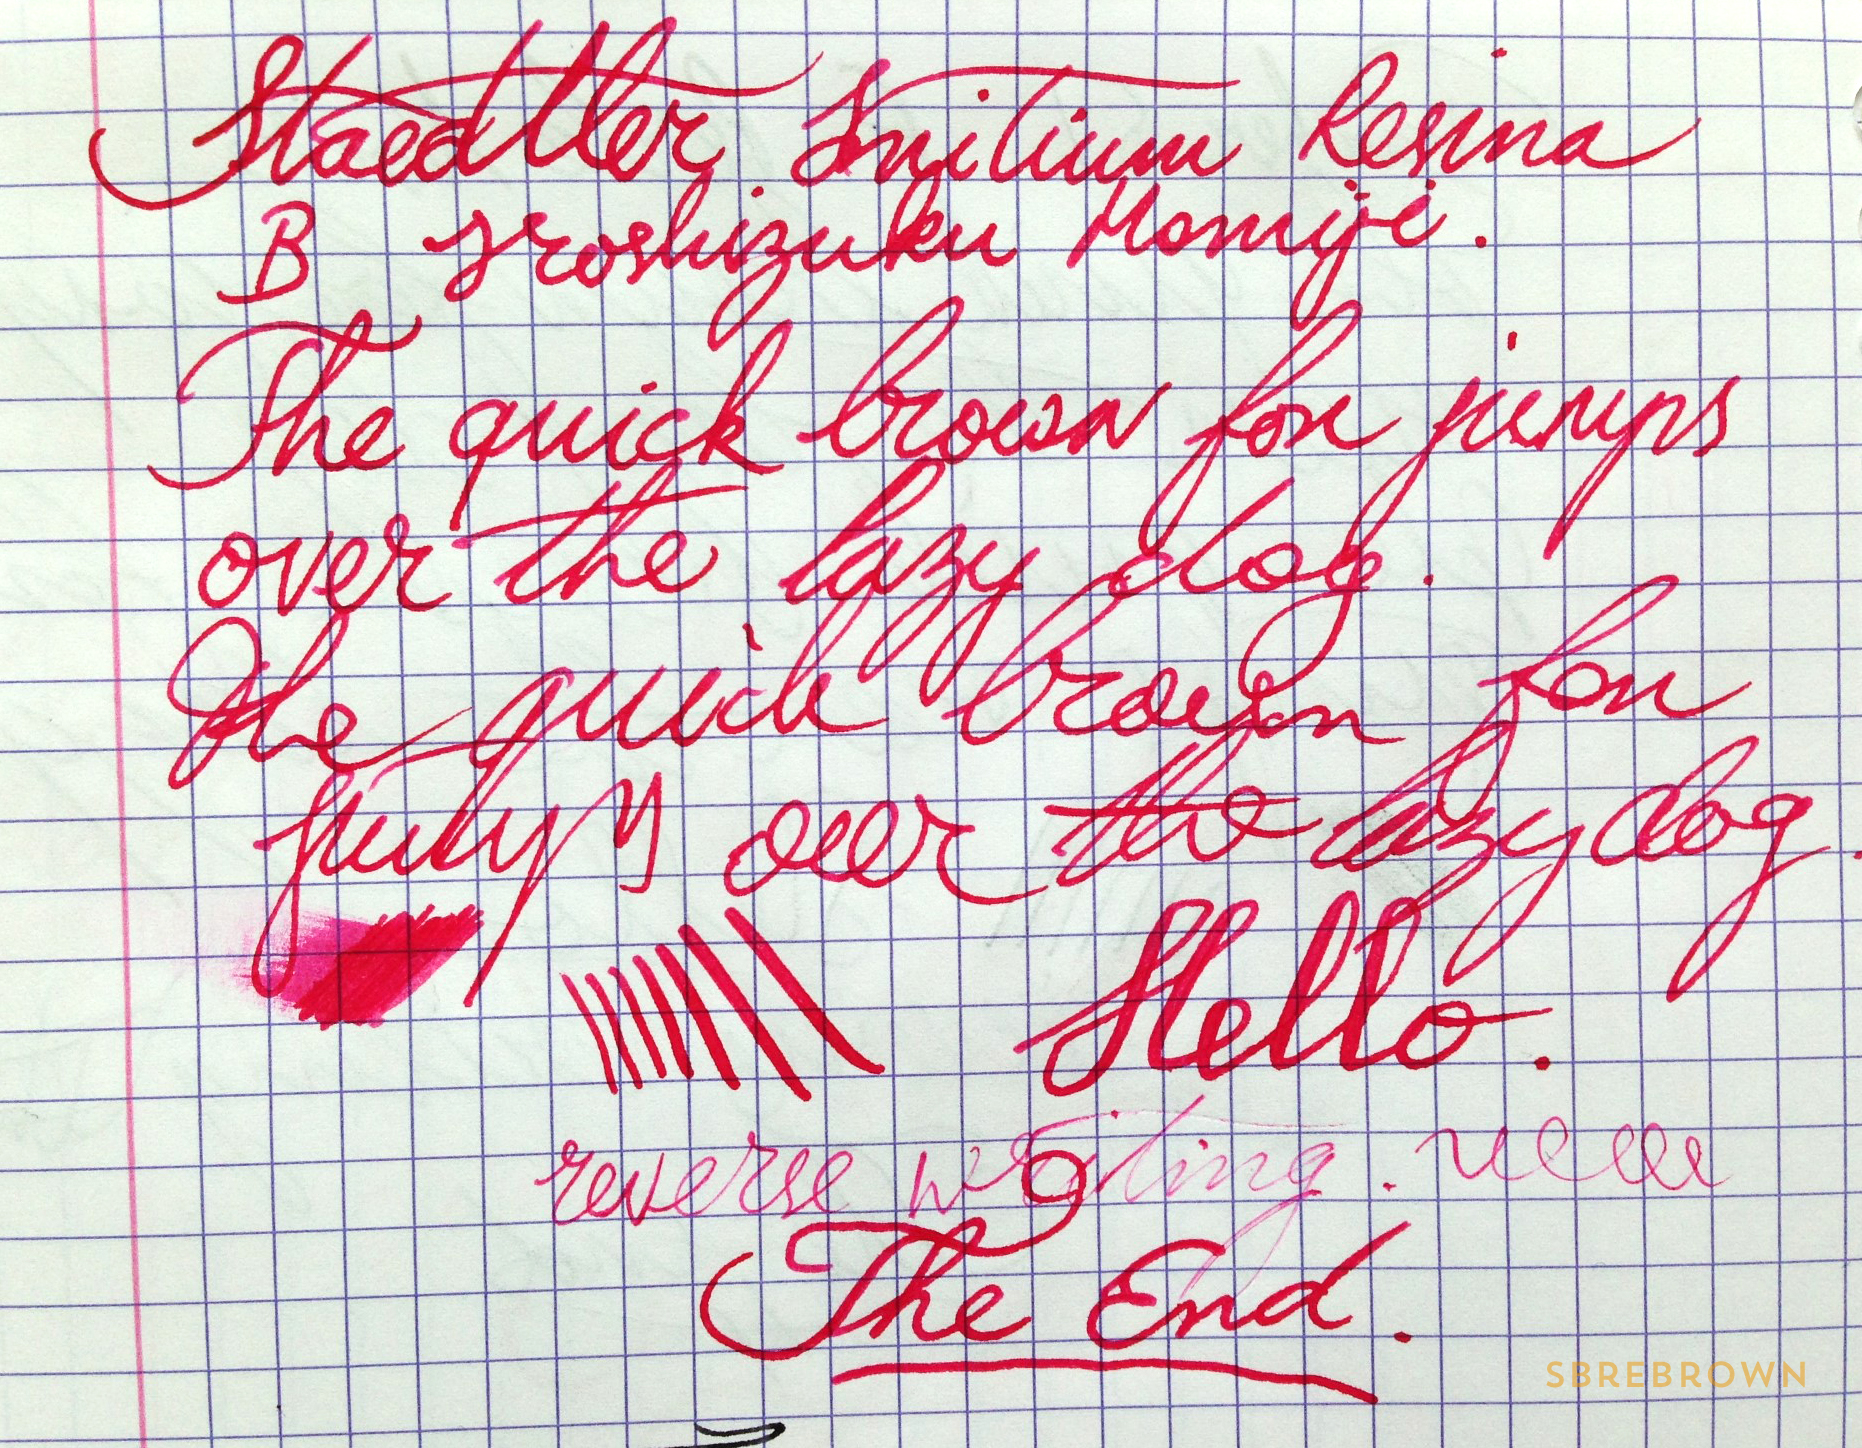 Staedtler Initium Resina
B Iroshizuku Momiji.
The quick brown fox jumps
over the lazy dog.
The quick brown fox
jumps over the lazy dog.
Hello.
reverse writing.
The End.
SBREBROWN